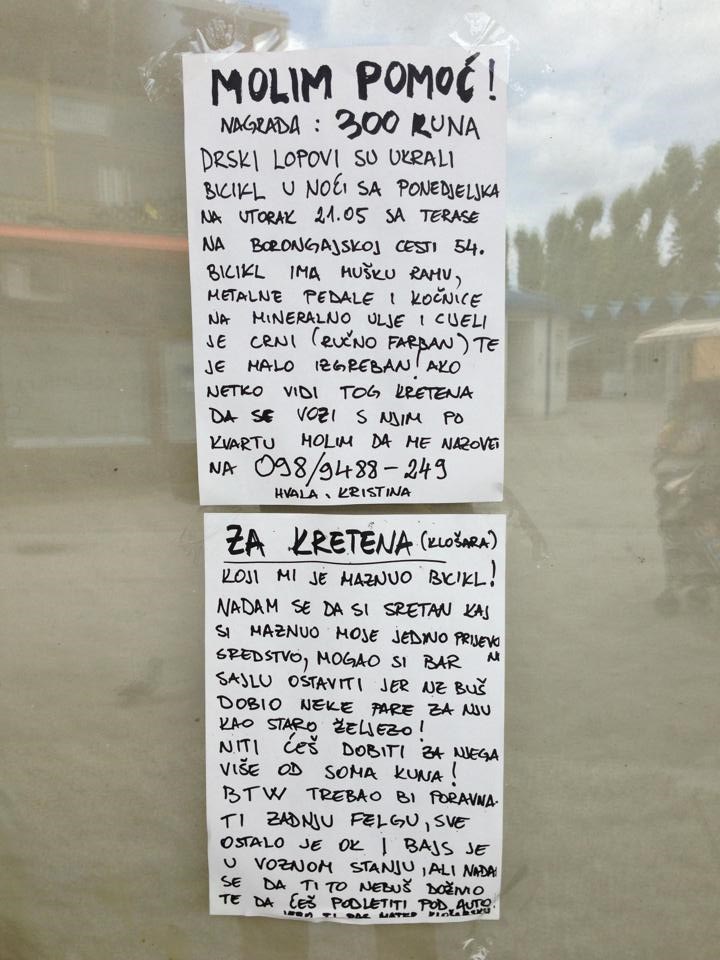 MOLIM POMOĆ!
NAGRADA : 300 KUNA
DRSKI LOPOVI SU UKRALI
BICIKL U NOĆI SA PONEDJELJKA
NA UTORAK 21.05 SA TERASE
NA BORONGAJSKOJ CESTI 54.
BICIKL IMA MUŠKU RAMU,
METALNE PEDALE I KOČNICE
NA MINERALNO ULJE I CIJELI
JE CRNI (RUČNO FARBAN) TE
JE MALO IZGREBAN! AKO
NETKO VIDI TOG KRETENA
DA SE VOZI S NJIM PO
KVARTU MOLIM DA ME NAZOVE
NA 098/9488-249
HVALA, KRISTINA
ZA KRETENA (KLOŠARA)
KOJI MI JE MAZNUO BICIKL!
NADAM SE DA SI SRETAN KAJ
SI MAZNUO MOJE JEDINO PRIJEVO
SREDSTVO, MOGAO SI BAR NI
SAJLU OSTAVITI JER NE BUŠ
DOBIO NEKE PARE ZA NJU
KAO STARO ŽELJEZO!
NITI ĆEŠ DOBITI ZA NJEGA
VIŠE OD SOMA KUNA!
BTW TREBAO BI PORAVNA-
TI ZADNJU FELGU, SVE
OSTALO JE OK I BAJS JE
U VOZNOM STANJU, ALI NADAM
SE DA TI TO NEBUŠ DOŽIVIO
TE DA ĆEŠ PODLETITI POD AUTO!
TI PAS MATER KLOŠARSKU